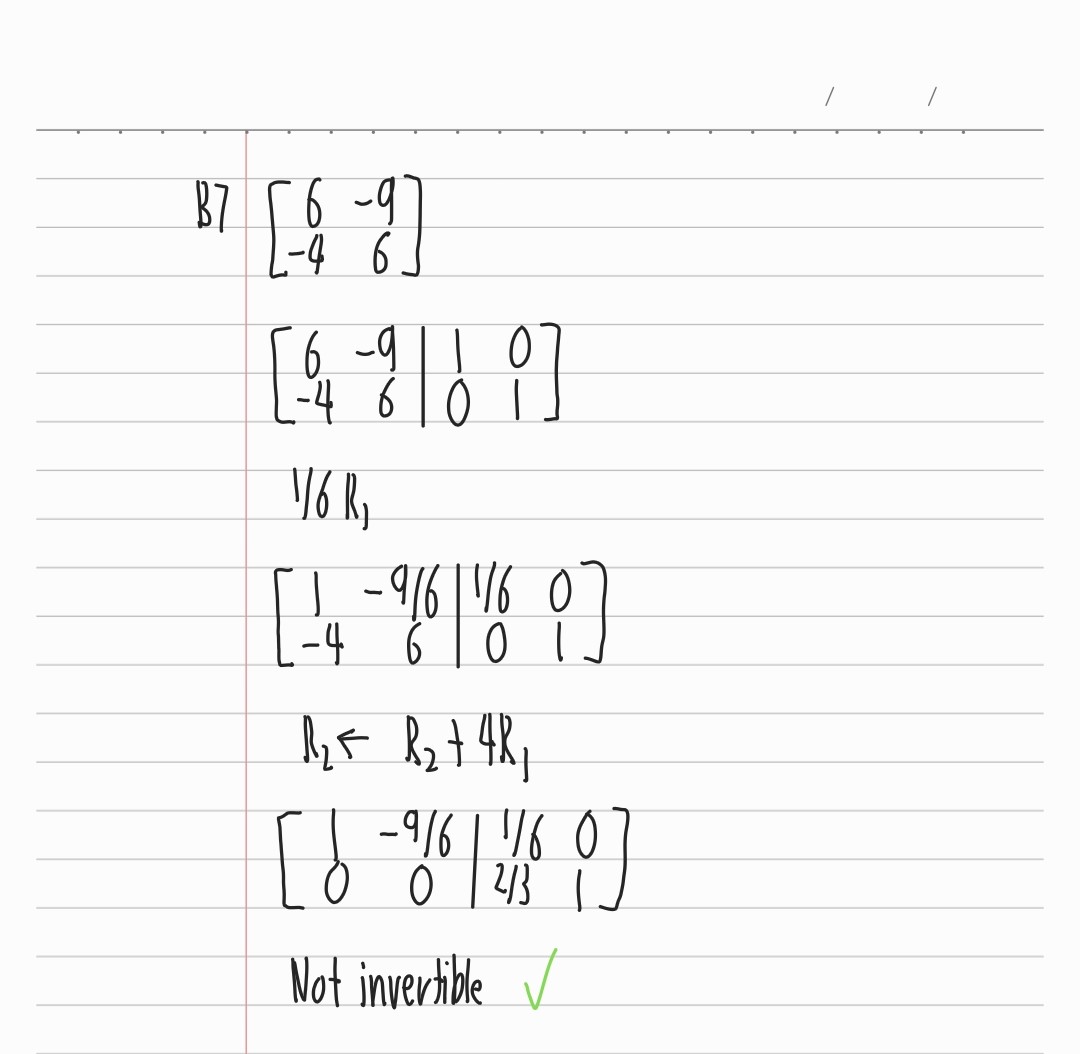 / /
B7 [ 6 -9 ]
[ -4 6 ]
[ 6 -9 | 1 0 ]
[ -4 6 | 0 1 ]
1/6 R₁
[ 1 -9/6 | 1/6 0 ]
[ -4 6 | 0 1 ]
R₂ ← R₂ + 4R₁
[ 1 -9/6 | 1/6 0 ]
[ 0 0 | 2/3 1 ]
Not invertible ✓